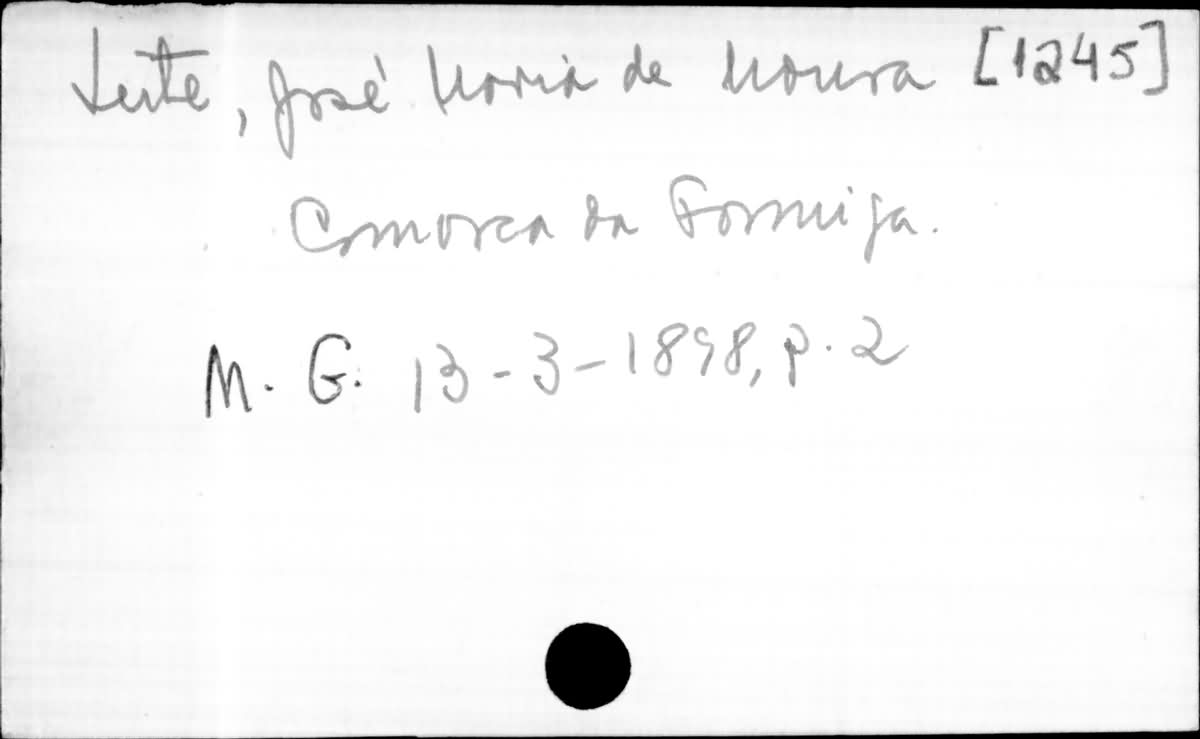 Leite, José Maria de Moura [1245]
Comarca da Formiga.
M. G. 13-3-1898, p. 2